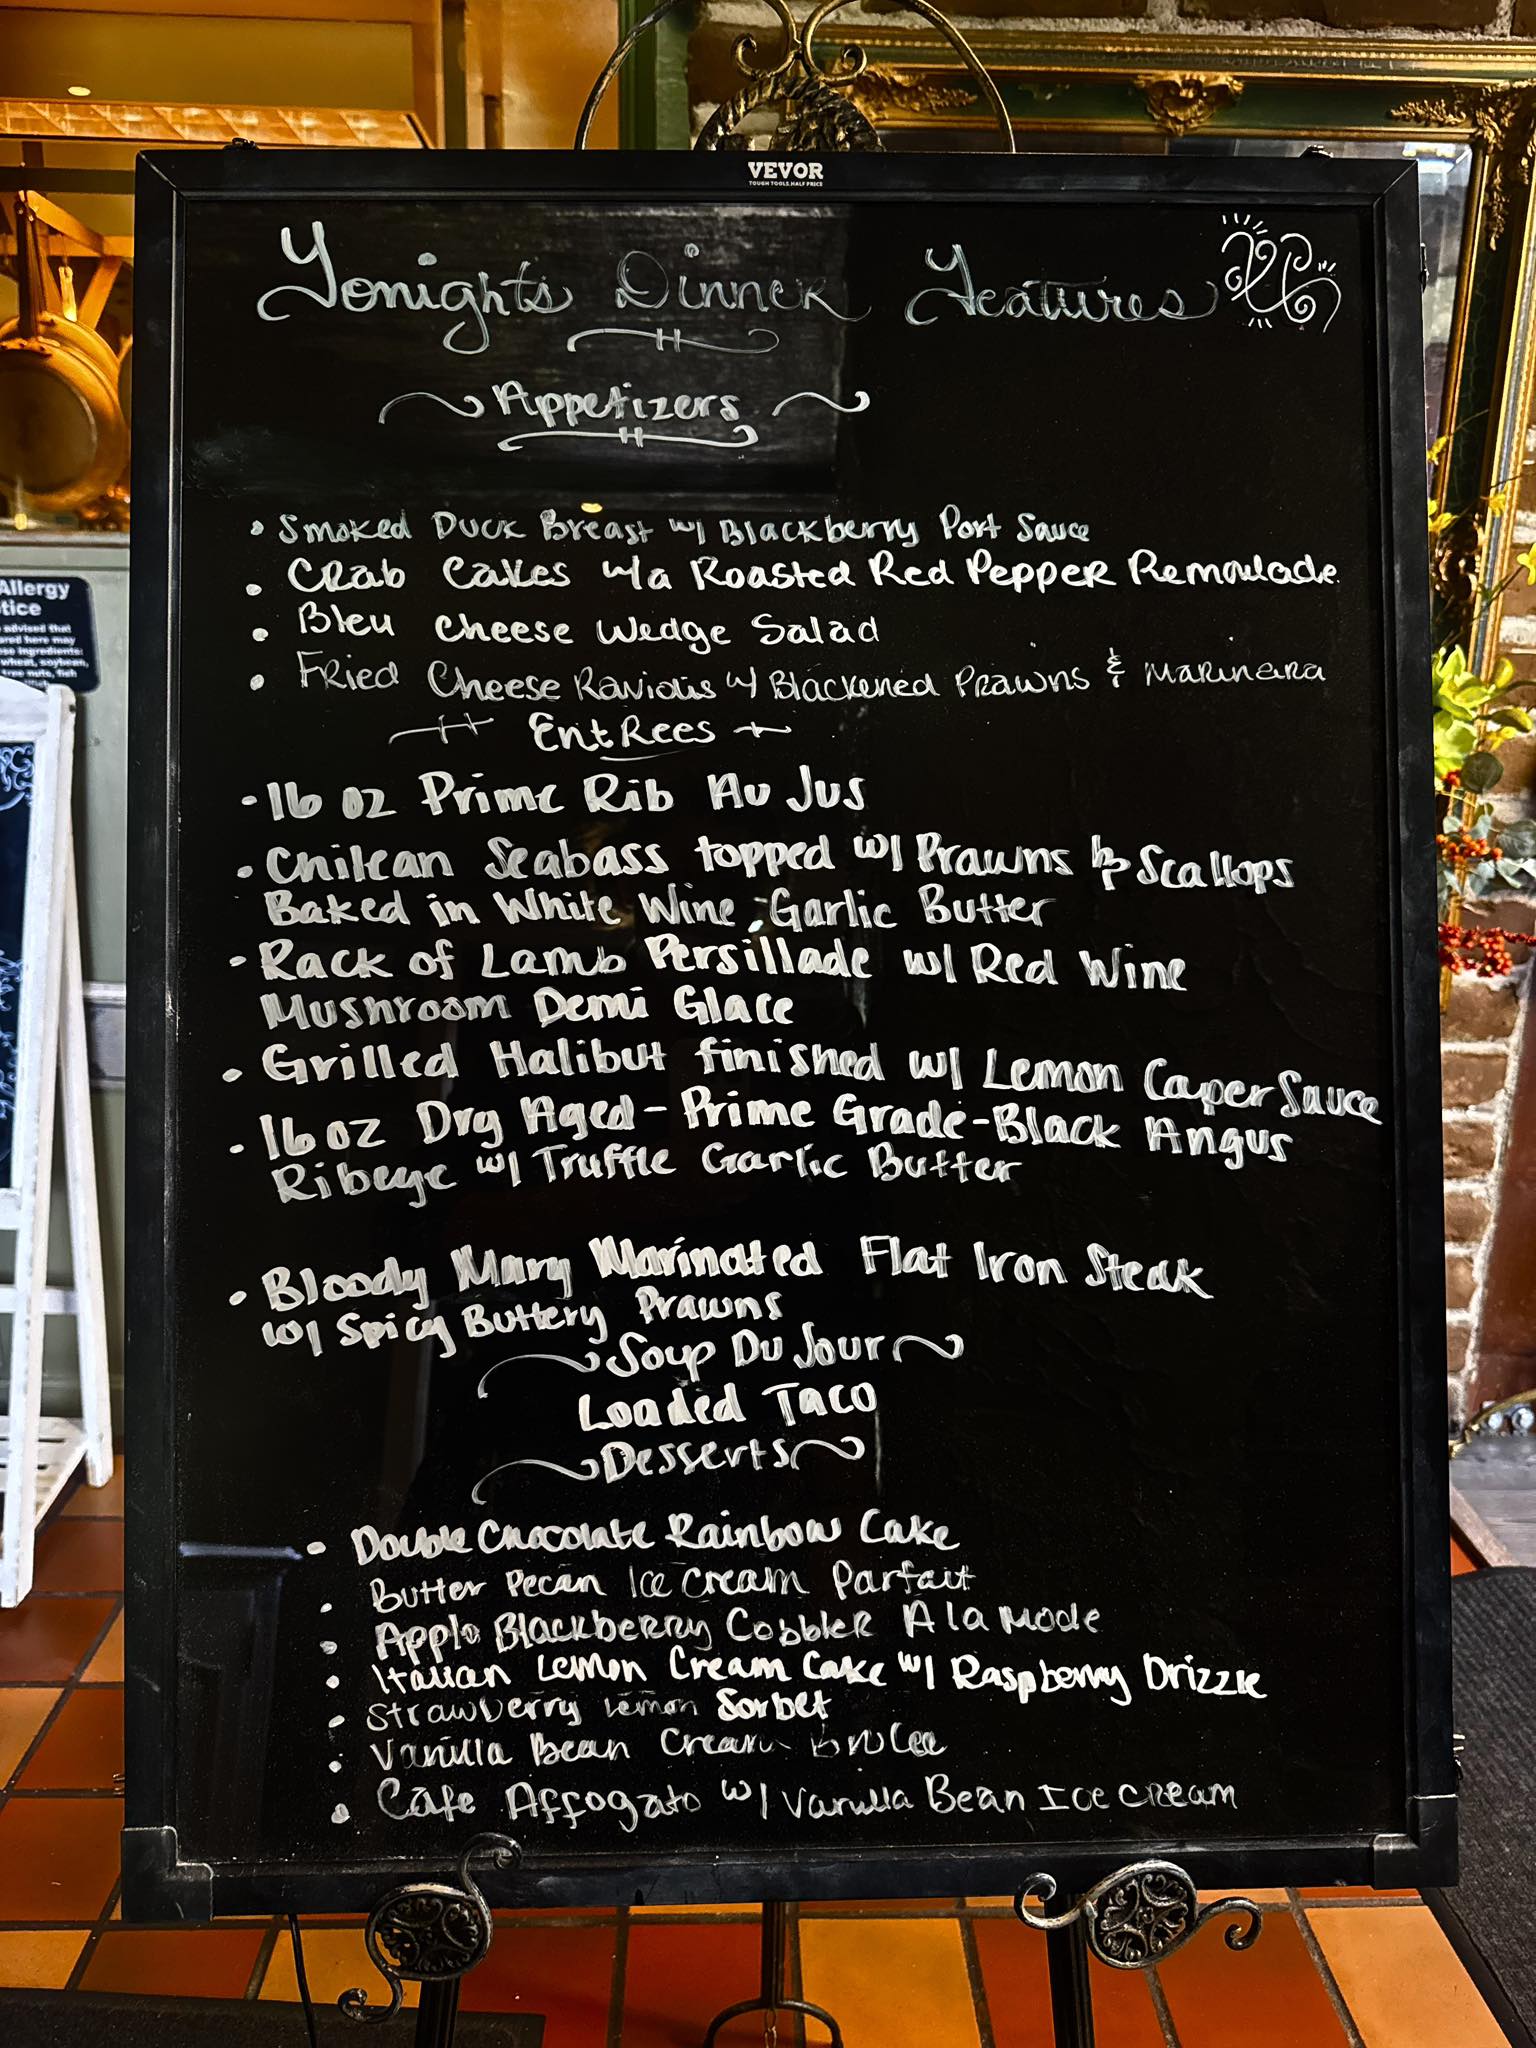 VEVOR
TOUGH TOOLS, HALF PRICE
Tonights Dinner Features
Appetizers
• Smoked Duck Breast w/ Blackberry Port Sauce
• Crab Cakes w/a Roasted Red Pepper Remoulade
• Bleu Cheese Wedge Salad
• Fried Cheese Raviolis w/ Blackened Prawns & Marinara
Entrees
• 16 oz Prime Rib Au Jus
• Chilean Seabass topped w/ Prawns & Scallops
Baked in White Wine Garlic Butter
• Rack of Lamb Persillade w/ Red Wine
Mushroom Demi Glace
• Grilled Halibut finished w/ Lemon Caper Sauce
• 16 oz Dry Aged - Prime Grade - Black Angus
Ribeye w/ Truffle Garlic Butter
• Bloody Mary Marinated Flat Iron Steak
w/ Spicy Buttery Prawns
Soup Du Jour
Loaded Taco
Desserts
• Double Chocolate Rainbow Cake
• Butter Pecan Ice Cream Parfait
• Apple Blackberry Cobbler A la Mode
• Italian Lemon Cream Cake w/ Raspberry Drizzle
• Strawberry Lemon Sorbet
• Vanilla Bean Cream Brulee
• Cafe Affogato w/ Vanilla Bean Ice Cream
Allergy
tice
advised that
ared here may
se ingredients:
wheat, soybean,
tree nuts, fish